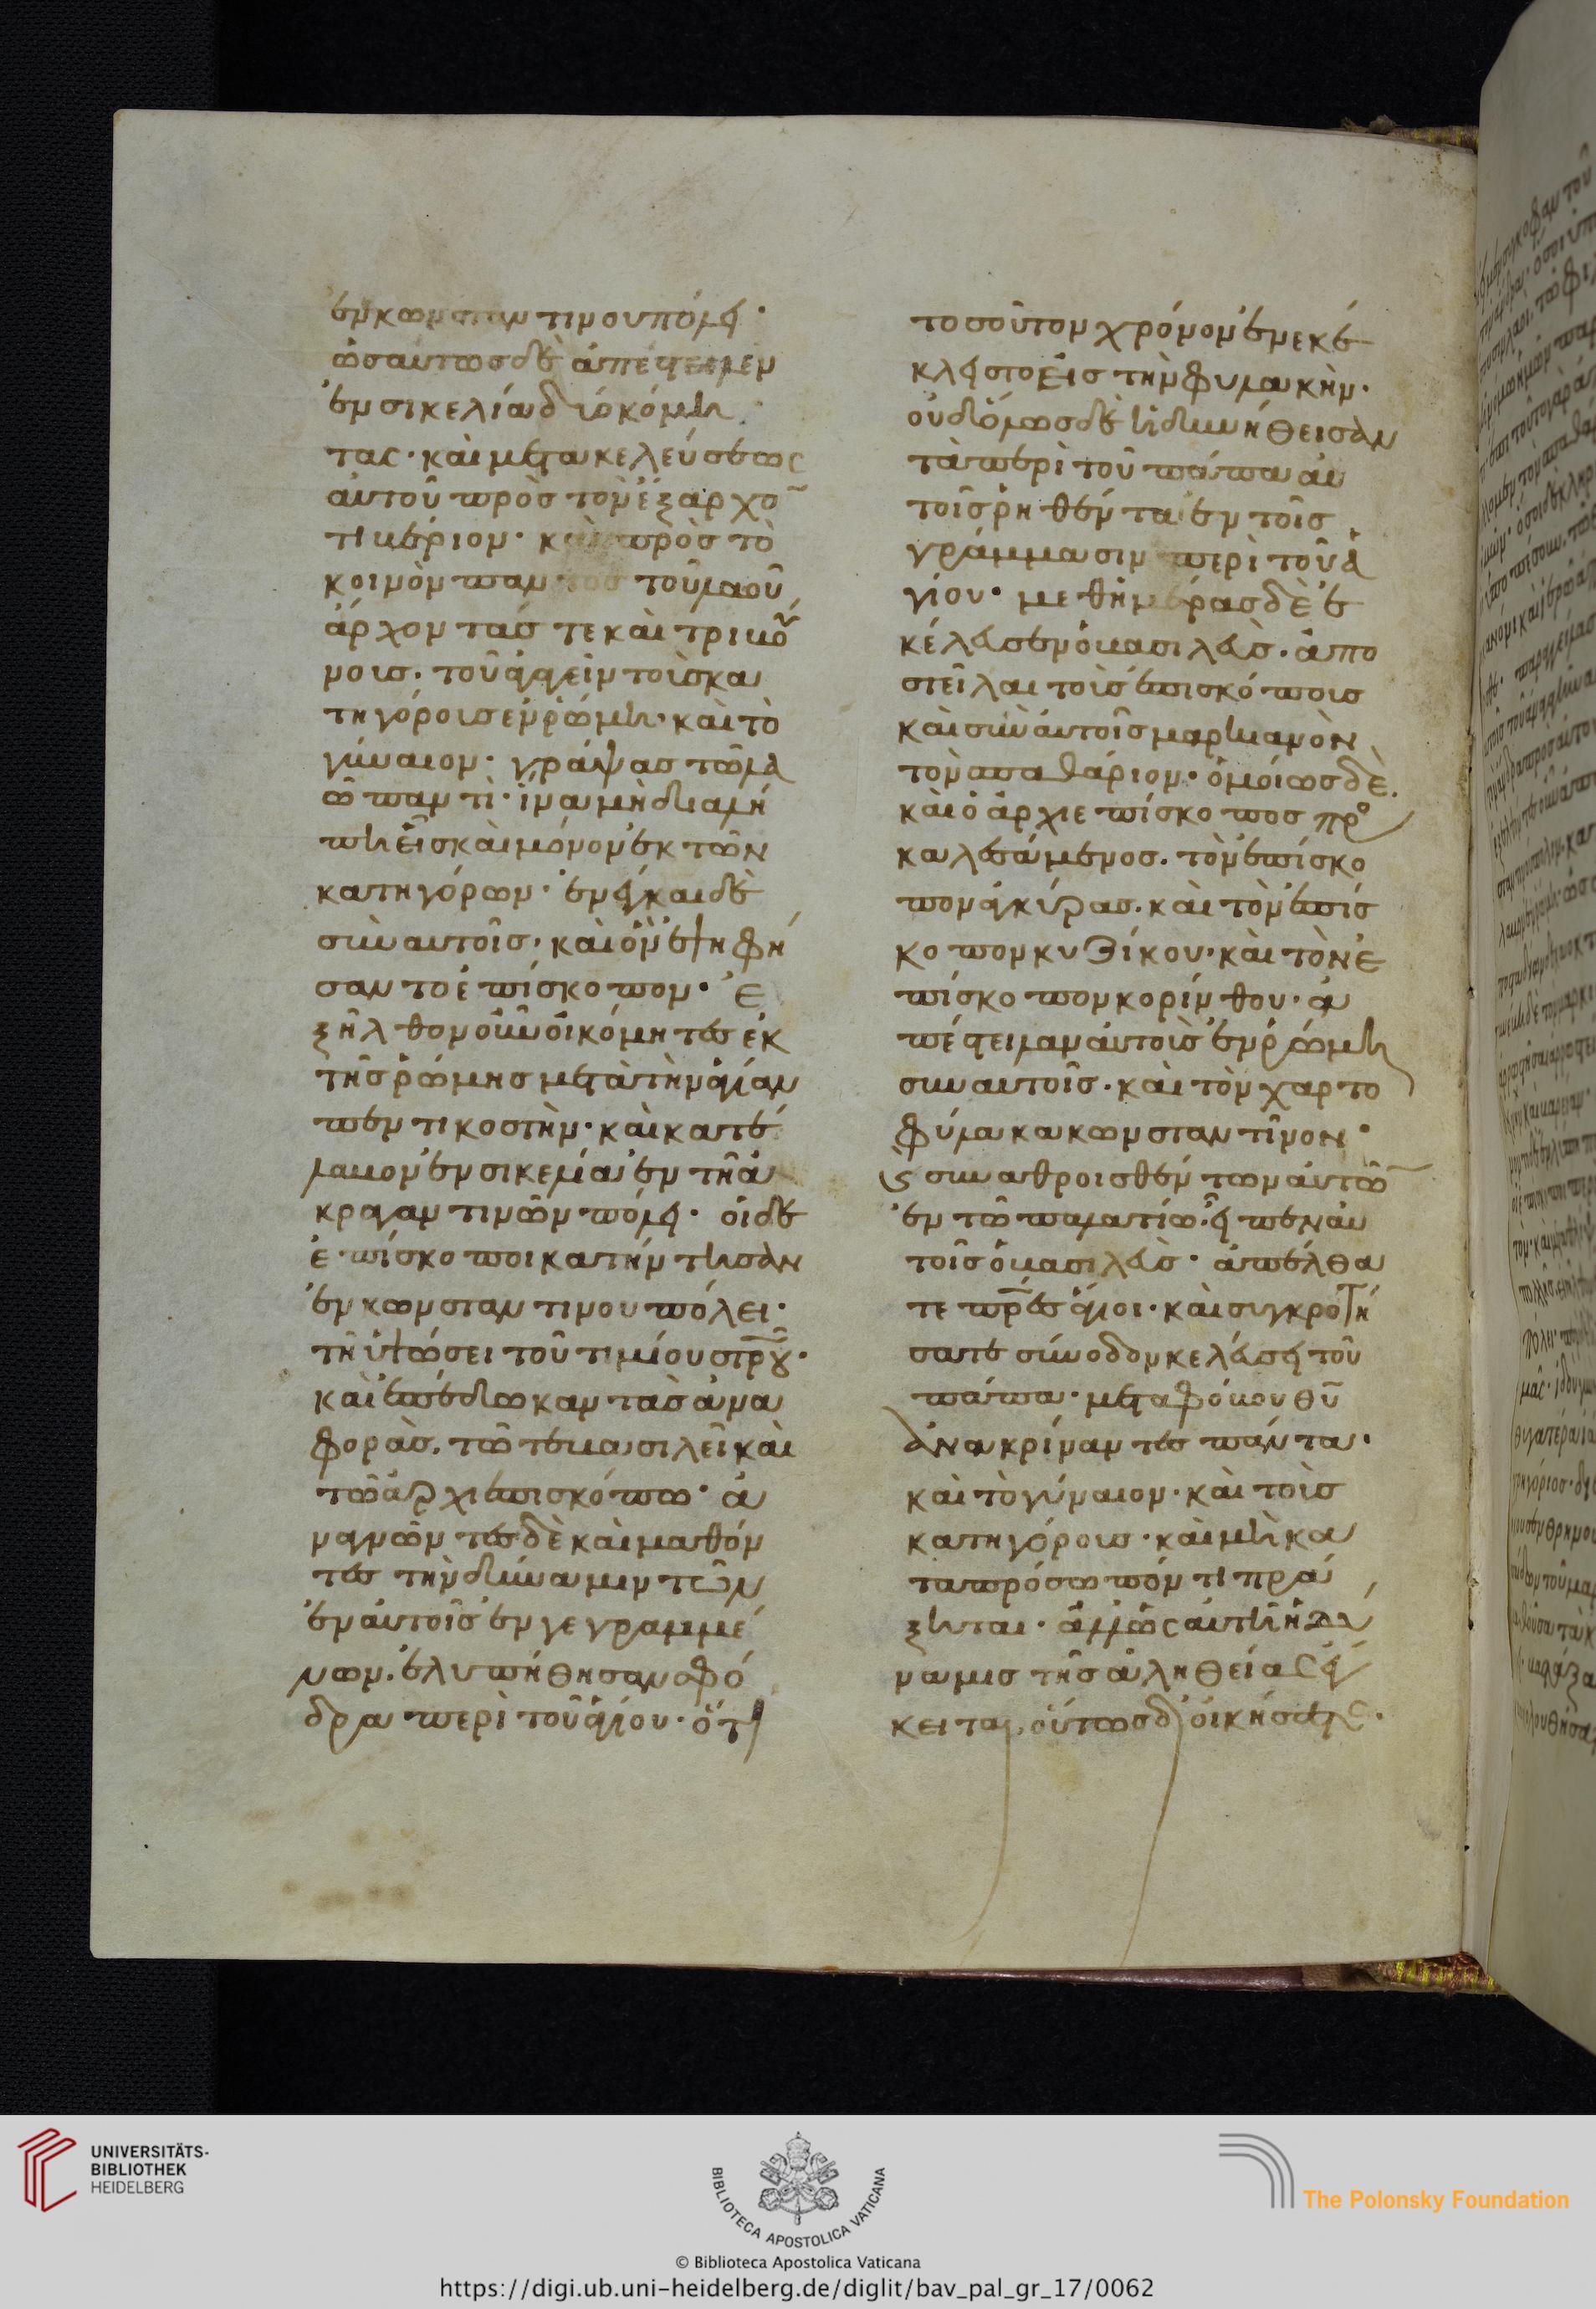 ἐν κωνσταντινουπόλει·
ὡσαύτως δὲ ἀπέστειλεν
ἐν σικελία διοκομή
τας· καὶ μετὰ κελεύσεως
αὐτοῦ πρὸς τὸν ἔξαρχο̅
τιβέριον· καὶ πρὸς τὸ
κοινὸν παντὸς τοῦ λαοῦ
ἄρχοντάς τε καὶ τριβού
νοις· τοῦ ἀγαγεῖν τοὺς κα
τηγόρους ἐν ῥώμη· καὶ τὸ
γύναιον· γράψας τῶ λα
ῶ παντὶ· ἵνα μὴ διαλή
πη εἷς καὶ μόνον ἐκ τῶν
κατηγόρων· ἐνεῖκαι δὲ
σὺν αὐτοῖς· καὶ ὃν ἐψηφή
σαντο ἐπίσκοπον· Ἐ
ξῆλθον οὖν οἱ κόμητες ἐκ
τῆς ῥώμης μετὰ τὴν ἁγίαν
πεντικοστὴν· καὶ κατέ
λαβον ἐν σικελία ἐν τῆ ἀ
κραγαντινῶν πόλει· οἱ δὲ
ἐπίσκοποι κατήντησαν
ἐν κωνσταντινουπόλει·
τῆ ὑψώσει τοῦ τιμίου στρου̅·
καὶ ἐπέδωκαν τὰς ἀνα
φορὰς, τῶ τε βασιλεῖ καὶ
τῶ ἀρχιεπισκόπω· ἀ
ναγνῶντες δὲ καὶ μαθόν
τες τὴν δύναμιν τῶν
ἐν αὐτοῖς ἐνγεγραμμέ
νων· ἐλυπήθησαν σφό
δρα περὶ τοῦ ἁγίου· ὅτι
τοσοῦτον χρόνον ἐνεκέ
κλειστο εἰς τὴν φυλακὴν·
οὐδ' ὅμως δὲ ἠδυνήθεισαν
τὰ περὶ τοῦ πάπα αὐ
τοῖς ῥηθέντα ἐν τοῖς
γράμμασιν περὶ τοῦ ἁ
γίου· μεθ' ἡμέρας δὲ ἐ
κέλευσεν ὁ βασιλεὺς· ἀπο
στεῖλαι τοὺς ἐπισκόπους
καὶ σὺν αὐτοῖς μαρκιανὸν
τὸν σπαθάριον· ὁμοίως δὲ
καὶ ὁ ἀρχιεπίσκοπος προ
καλεσάμενος· τὸν ἐπίσκο
πον ἀγκύρας· καὶ τὸν ἐπίσ
κοπον κυζίκου· καὶ τὸν ἐ
πίσκοπον κορίνθου· ἀ
πέστειλαν αὐτοὺς ἐν ῥώμη
σὺν αὐτοῖς· καὶ τὸν χαρτο
φύλακα κωνσταντῖνον·
ϛ συναθροισθέντων αὐτῶ̅
ἐν τῶ παλατίω· εἶπεν αὐ
τοῖς ὁ βασιλεὺς· ἀπέλθα
τε πρ̅ες ἅγιοι· καὶ συγκροτή
σατε σύνοδον κελεύσει τοῦ
πάπα· μετὰ φόβου θυ̅
ἀνακρίναντες πάντα·
καὶ τὸ γύναιον· καὶ τοὺς
κατηγόρους· καὶ μὴ κα
τὰ πρόσωπόν τι πρά
ξηται· ἀλλ' ὡς αὐτὴ ἡ δύ
ναμις τῆς ἀληθείας εἵ
κειται, οὕτως διοικήσατε·
UNIVERSITÄTS-
BIBLIOTHEK
HEIDELBERG
BIBLIOTECA APOSTOLICA VATICANA
The Polonsky Foundation
© Biblioteca Apostolica Vaticana
https://digi.ub.uni-heidelberg.de/diglit/bav_pal_gr_17/0062